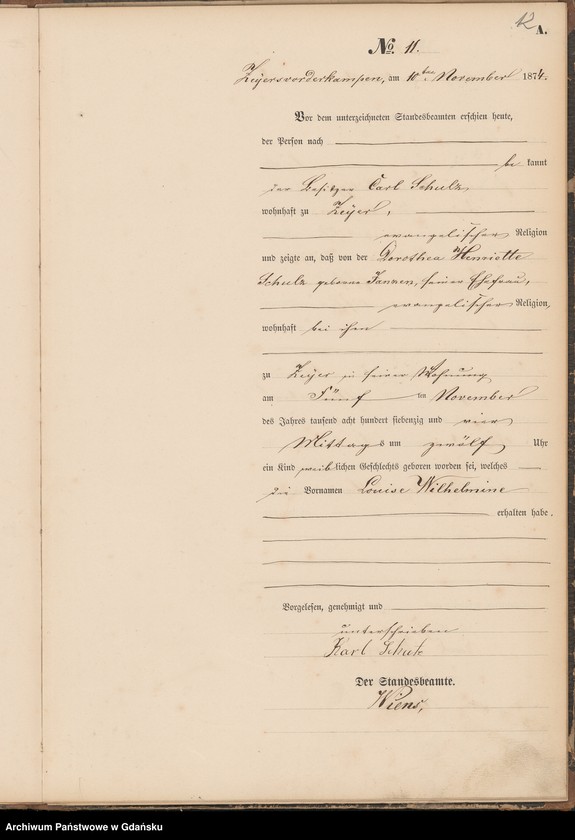 12
A.
No. 11.
Zeyersvorderkampen, am 10ten November 1874.
Vor dem unterzeichneten Standesbeamten erschien heute,
der Person nach
bekannt
der Besitzer Carl Schulz,
wohnhaft zu Zeyer,
evangelischer Religion
und zeigte an, daß von der Dorothea Henriette
Schulz geborne Janzen, seiner Ehefrau,
evangelischer Religion,
wohnhaft bei ihm
zu Zeyer in seiner Wohnung
am Fünf ten November
des Jahres tausend acht hundert siebenzig und vier
Mittags um zwölf Uhr
ein Kind weiblichen Geschlechts geboren worden sei, welches
die Vornamen Louise Wilhelmine
erhalten habe.
Vorgelesen, genehmigt und
unterschrieben
Karl Schulz
Der Standesbeamte.
Wiens,
Archiwum Państwowe w Gdańsku